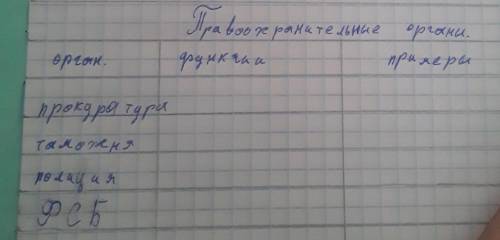 Правоохранительные органы.
орган. функции примеры
прокуратура
таможня
полиция
ФСБ